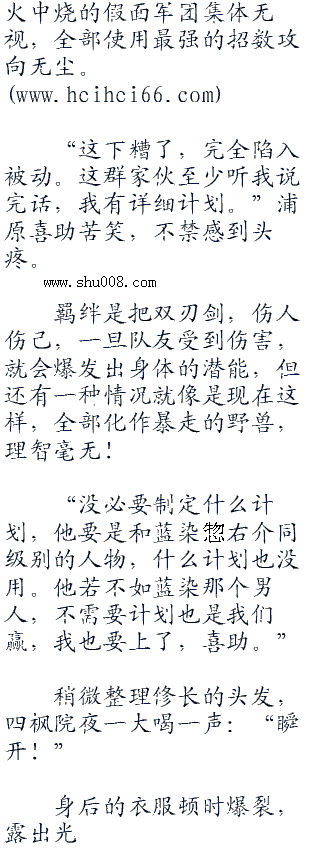 火中烧的假面军团集体无
视，全部使用最强的招数攻
向无尘。
(www.hcihci66.com)
“这下糟了，完全陷入
被动。这群家伙至少听我说
完话，我有详细计划。”浦
原喜助苦笑，不禁感到头
疼。
www.shu008.com
羁绊是把双刃剑，伤人
伤己，一旦队友受到伤害，
就会爆发出身体的潜能，但
还有一种情况就像是现在这
样，全部化作暴走的野兽，
理智毫无！
“没必要制定什么计
划，他要是和蓝染惣右介同
级别的人物，什么计划也没
用。他若不如蓝染那个男
人，不需要计划也是我们
赢，我也要上了，喜助。”
稍微整理修长的头发，
四枫院夜一大喝一声：“瞬
开！”
身后的衣服顿时爆裂，
露出光